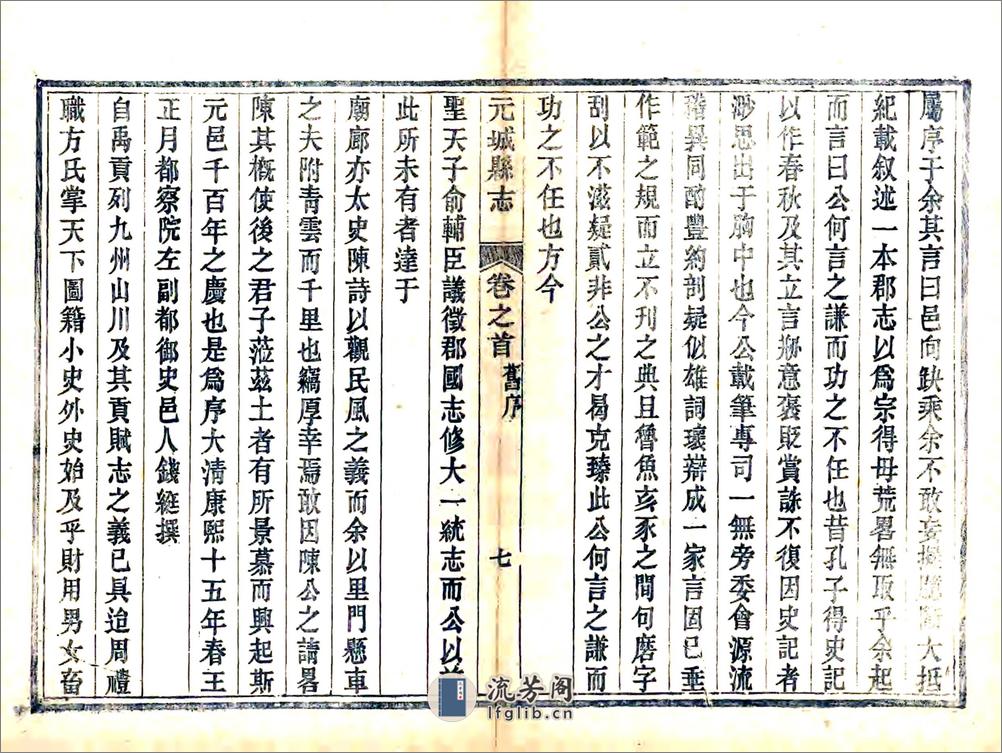 屬序于余其言曰邑向缺乘余不敢妄擬大抵
紀載叙述一本郡志以爲宗得毋荒畧無取乎余起
而言曰公何言之謙而功之不任也昔孔子得史記
以作春秋及其立言刱意褒貶賞誅不復因史記者
渺思出于胸中也今公載筆專司一無旁委會源流
稽異同酌豐約剖疑似雄詞瓌辯成一家言固已垂
作範之規而立不刊之典且魯魚亥豕之間句磨字
刮以不滋疑貳非公之才曷克臻此公何言之謙而
功之不任也方今
元城縣志 卷之首 舊序 七
聖天子俞輔臣議徵郡國志修大一統志而公以
此所未有者達于
廟廊亦太史陳詩以觀民風之義而余以里門懸車
之夫附青雲而千里也竊厚幸焉敢因陳公之請畧
陳其概使後之君子蒞茲土者有所景慕而興起斯
元邑千百年之慶也是爲序大清康熙十五年春王
正月都察院左副都御史邑人錢綎撰
自禹貢列九州山川及其貢賦志之義已具迨周禮
職方氏掌天下圖籍小史外史始及乎財用男女畜
流芳阁
lfglib.cn